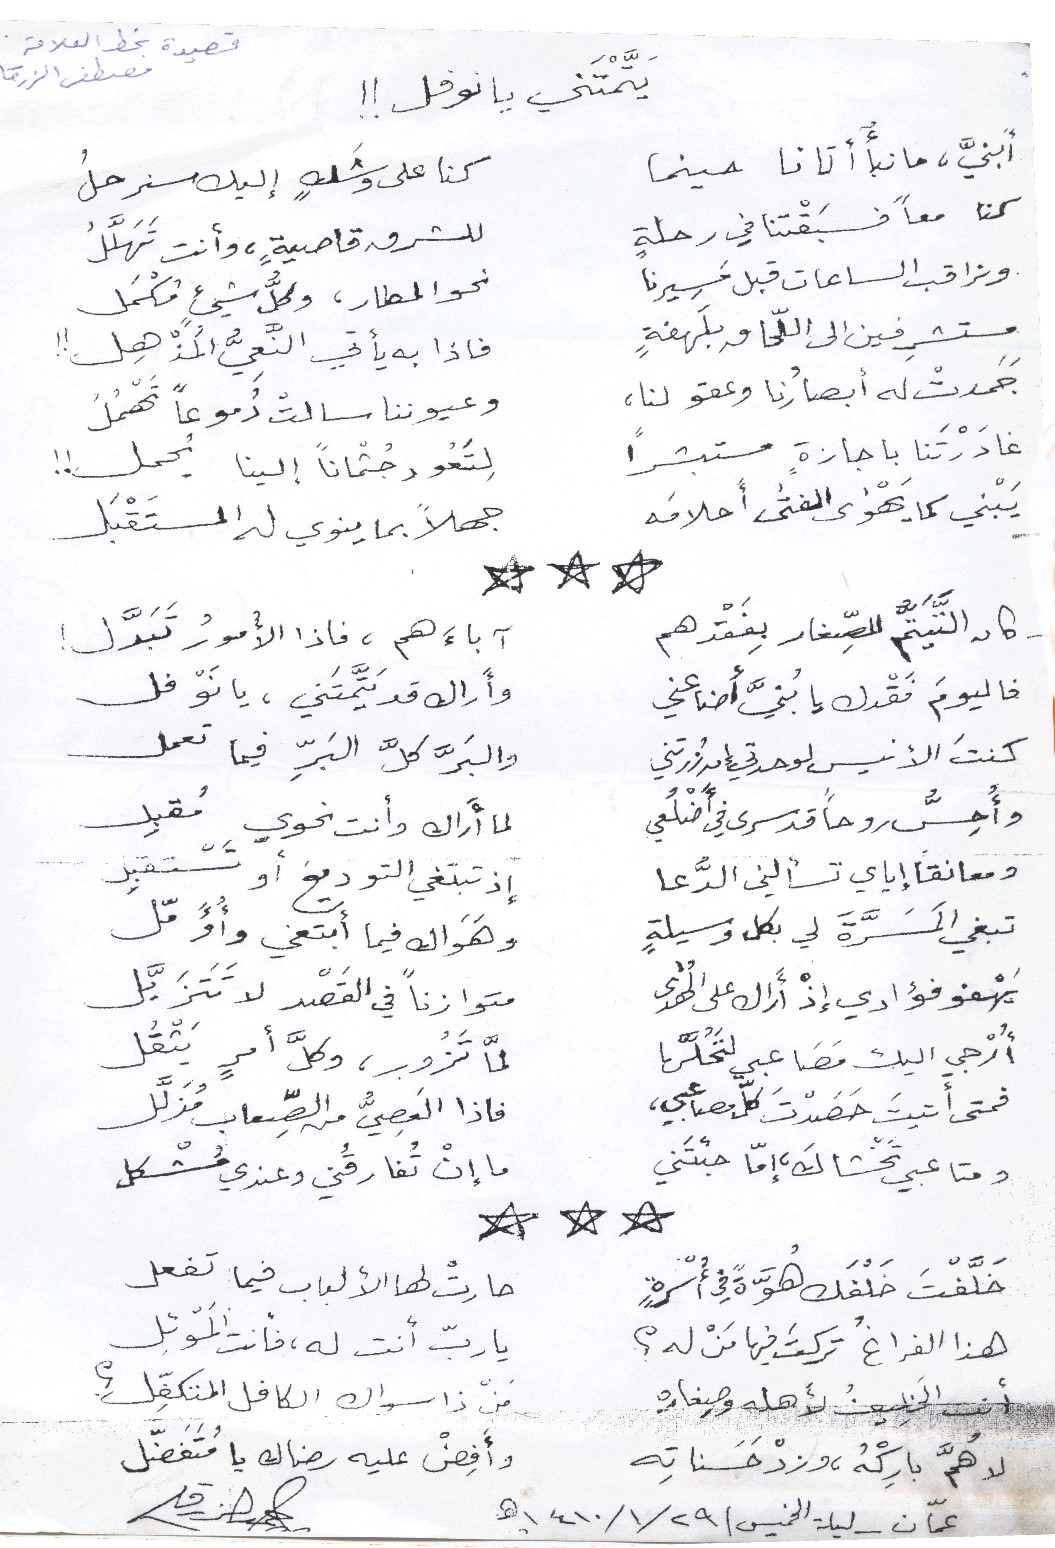 قصيدة بخط العلامة
مصطفى الزرقا
يَتَّمْتَني يا نوفل !!
أبنيَّ، ما نبأٌ أتانا حينما كنا على وَشَكٍ إليك سنرحلُ
كنا معاً فسبَقْتنا في رحلةٍ للشرق قاصيةٍ، وأنت تَهَلَّلُ
ونراقب الساعات قبل مَسِيرنا نحو المطار، وكلُّ شيءٍ مُكْمَل
مستشرفين الى اللّحاق بلَهفةٍ فاذا به يأتي النَّعِيُّ المُذْهِل !!
جَمَدتْ له أبصارُنا وعقولنا، وعيوننا سالتْ دُموعاً تَهْمُلُ
غادَرْتَنا باجازةٍ مستبشراً لِتَعُود جُثْماناً إلينا يُحمل !!
يَبْني كما يَهْوَى الفتى أحلامَه جهلاً بما ينوي له المستَقْبَل
كان التَّيَتُّمُ للصِّغار بفَقْدهم آباءَهم، فاذا الأُمورُ تَبَدَّل !
فاليومَ فَقْدك يا بُنيَّ أضاعني وأَراك قد يَتَّمتَني، يا نَوْفل
كنتَ الأنيس لوحدتي إن زُرتني والبَرَّ كلَّ البَرِّ فيما تعمل
وأُحِسُّ روحاً قد سرى في أَضْلُعي لما أَراك وأنت نحوي مُقبِل
ومعانقاً إياي تسألني الدُّعا إذ تبتغي التوديع أو تَسْتقبِل
تبغي المَسَرَّةَ لي بكل وسيلةٍ وهَوَاك فيما أبتغي وأُؤَمّل
يَهْفو فؤادي إذْ أَراك على الهُدى متوازناً في القَصْد لا تَتَزَيَّل
أُزْجي اليك مَصَاعبي لتَحُلَّها لمَّا تَزُور، وكلَّ أمرٍ يَثْقُل
فمتى أتيتَ حَصَدْتَ كلَّ مصاعبي، فاذا العَصِيُّ من الصِّعاب مُذَلَّل
ومتاعبي تَخْشاكَ، إمّا جئتَني ما إنْ تُفارقُني وعندي مُشْكل
خَلَّفْتَ خَلْفَك هُوَّةً في أُسْرةٍ حارتْ لها الألباب فيما تفعل
هذا الفراغُ تركتَ فيها مَنْ له؟ يا ربّ أنت له، فأنت المَوْئِل
أنت الخليفُ لأهله وصِغاره مَنْ ذا سواك الكافل المتكفِّل؟
لاهُمَّ بارِكْهُ، وزدْ حَسَناتِه وأَفِضْ عليه رضاك يا مُتَفَضِّل
عمّان – ليلة الخميس ٢٩/١/١٤١٠هـ